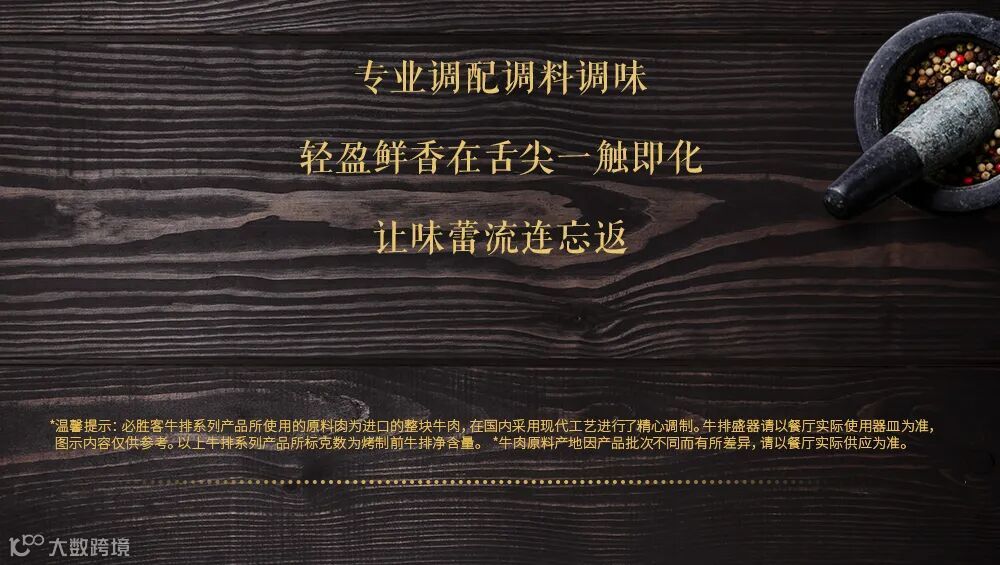 专业调配调料调味
轻盈鲜香在舌尖一触即化
让味蕾流连忘返
*温馨提示：必胜客牛排系列产品所使用的原料肉为进口的整块牛肉，在国内采用现代工艺进行了精心调制。牛排盛器请以餐厅实际使用器皿为准，
图示内容仅供参考。以上牛排系列产品所标克数为烤制前牛排净含量。 *牛肉原料产地因产品批次不同而有所差异，请以餐厅实际供应为准。
大数跨境